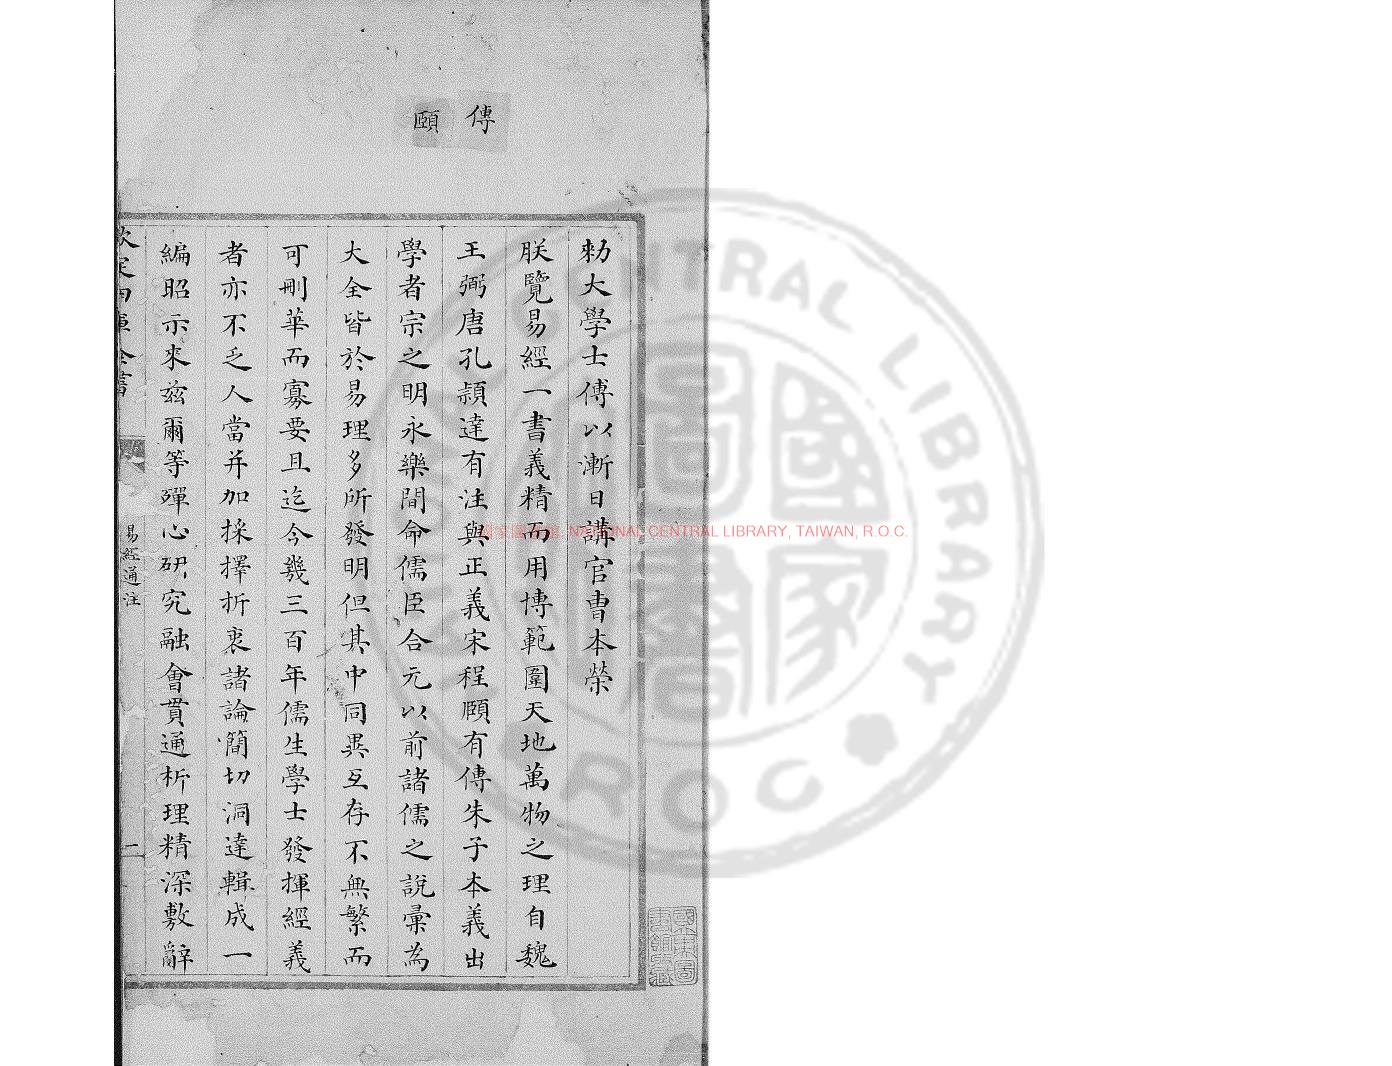 傳
頤
勅大學士傅以漸日講官曹本榮
朕覽易經一書義精而用博範圍天地萬物之理自魏
王弼唐孔頴達有注與正義宋程頤有傳朱子本義出
學者宗之明永樂間命儒臣合元以前諸儒之說彙為
大全皆於易理多所發明但其中同異互存不無繁而
可刪華而寡要且迄今幾三百年儒生學士發揮經義
者亦不乏人當并加採擇折衷諸論簡切洞達輯成一
編昭示來兹爾等殫心研究融會貫通析理精深敷辭
欽定四庫全書
易經通注
一
國家圖書館, NATIONAL CENTRAL LIBRARY, TAIWAN, R.O.C.
CENTRAL LIBRARY
R.O.C